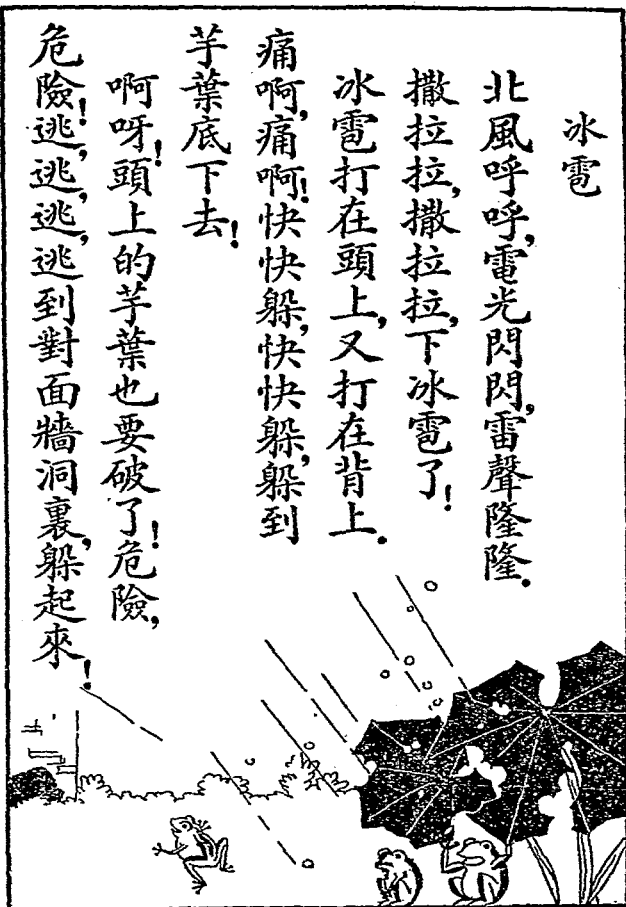 冰雹
北風呼呼,電光閃閃,雷聲隆隆.
撒拉拉,撒拉拉,下冰雹了!
冰雹打在頭上,又打在背上.
痛啊,痛啊!快快躲,快快躲,躲到
芋葉底下去!
啊呀!頭上的芋葉也要破了!危險,
危險!逃,逃,逃,逃到對面牆洞裏,躲起來!